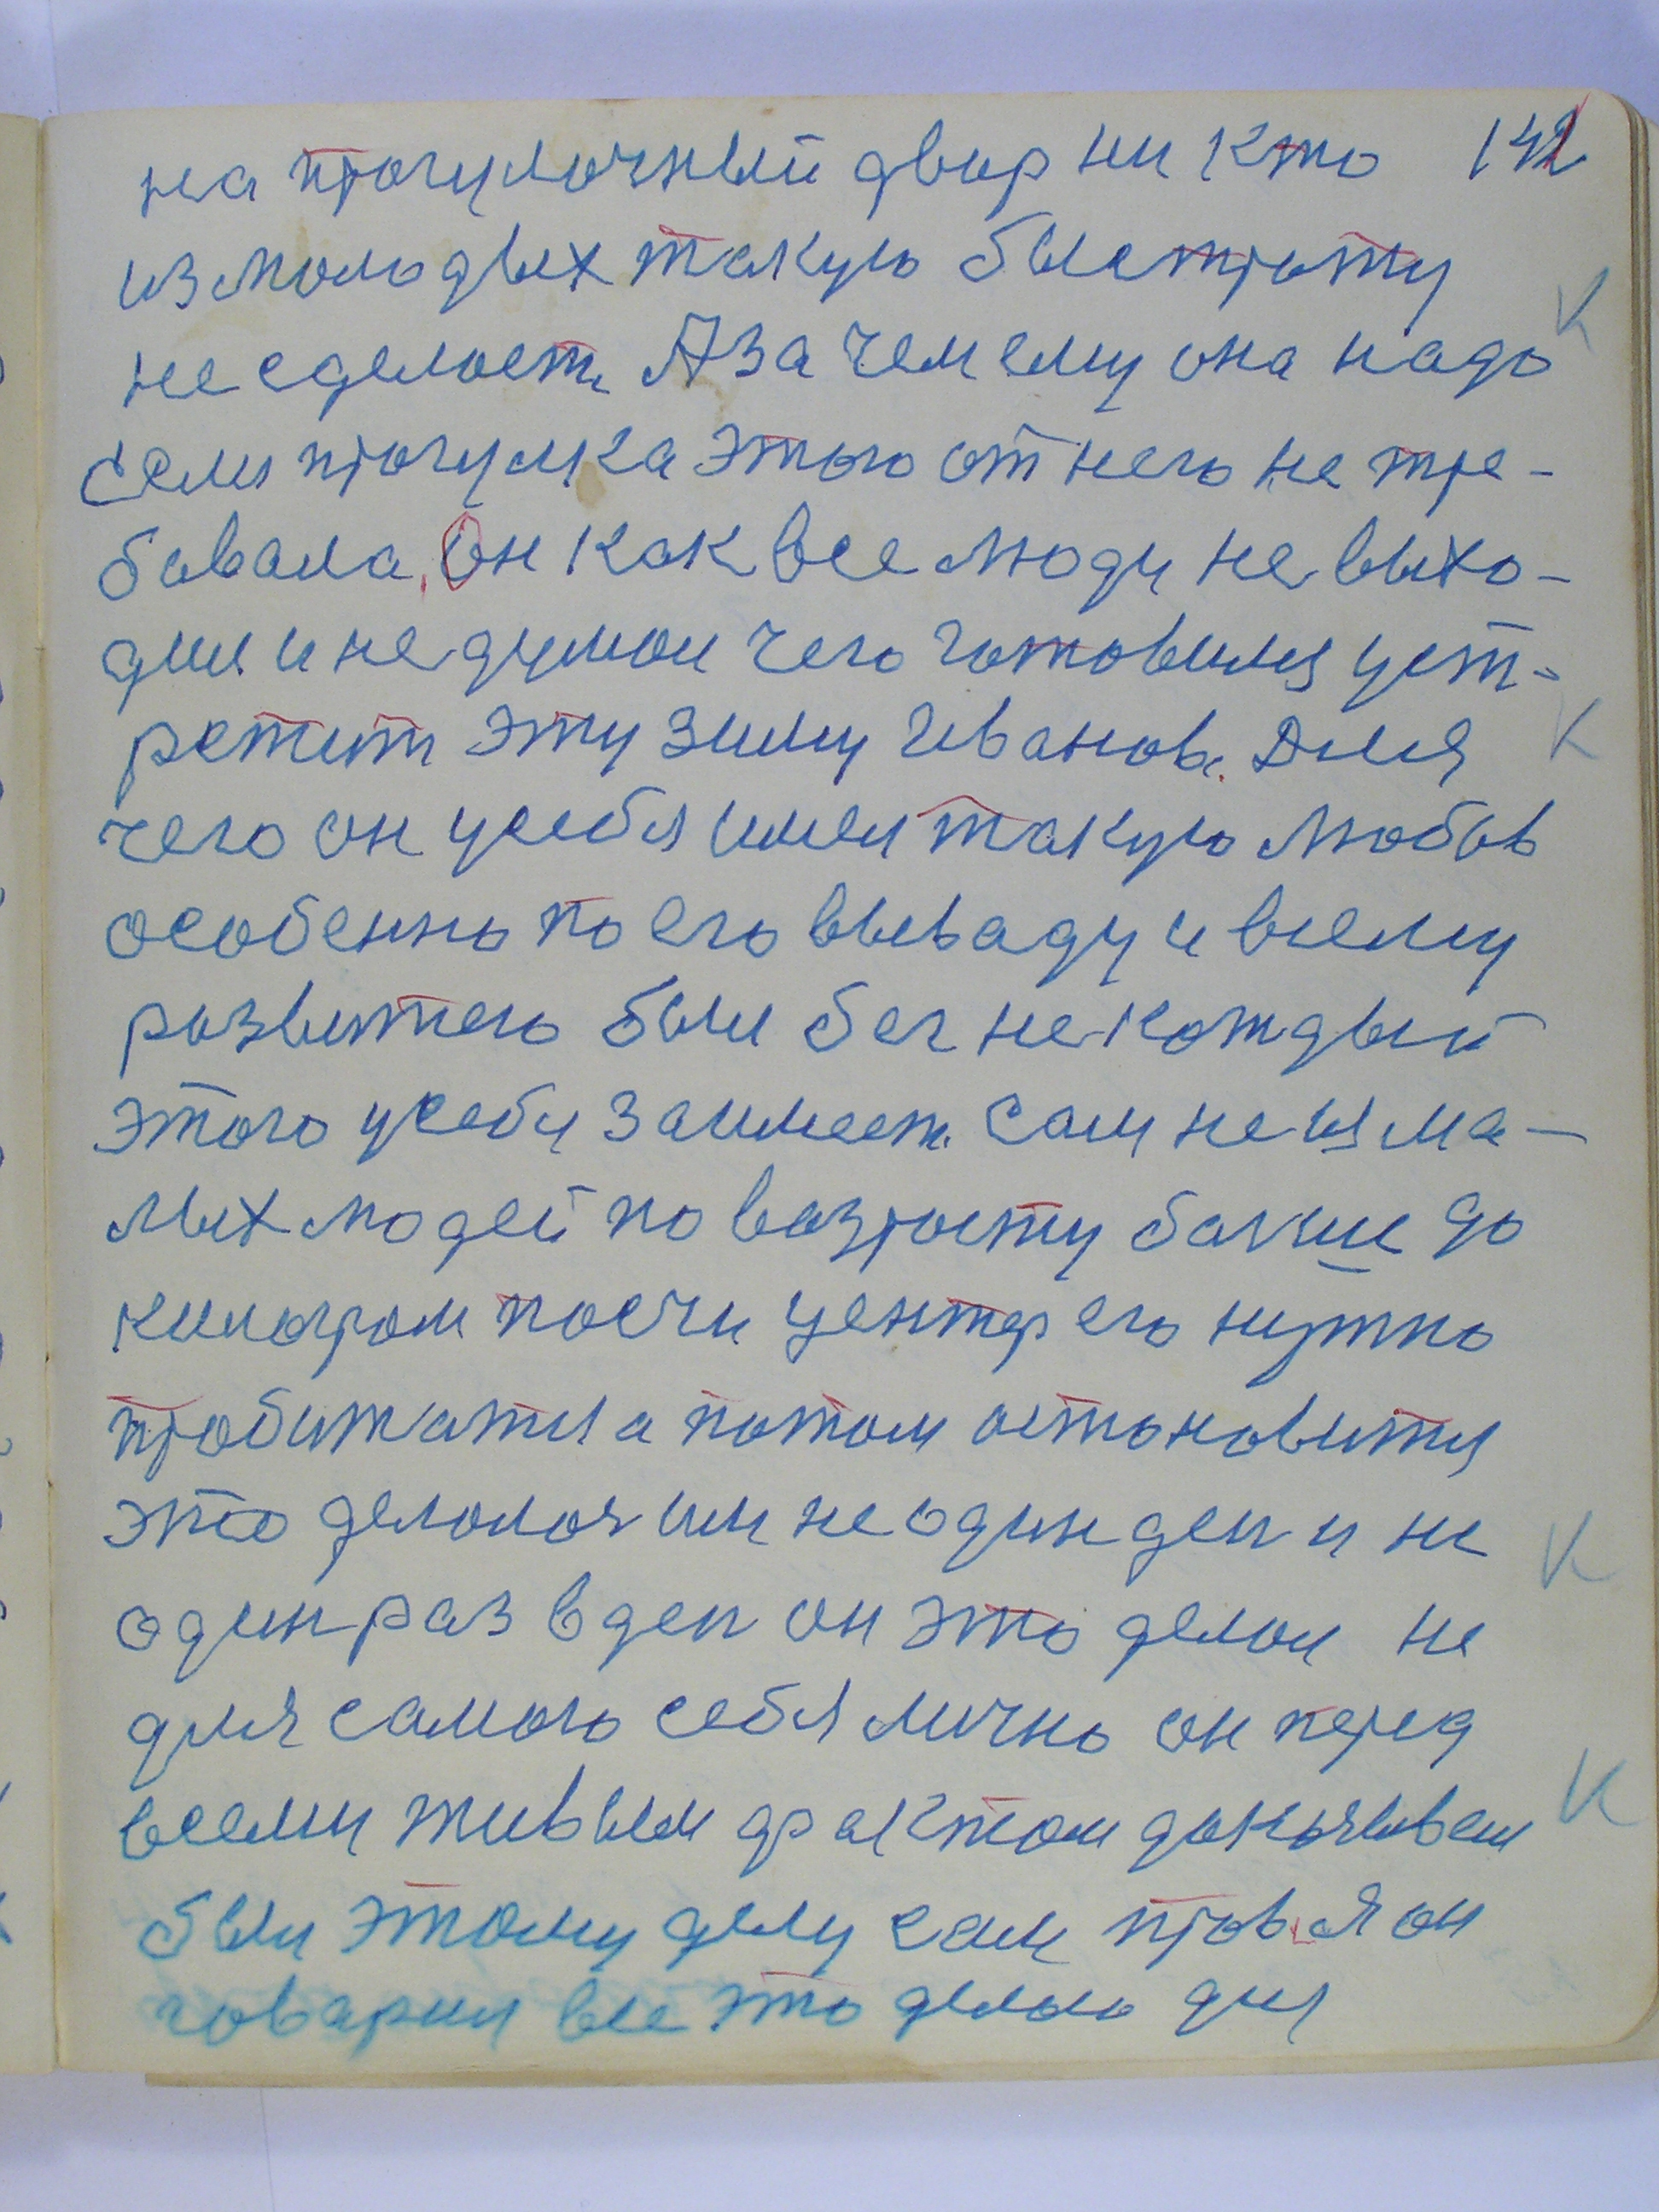 на прогулочный двор ни кто 142
из молодых такую быстроту
не сделает. А за чем ему она надо
Если прогулка этого от него не тре-
бовала. Он как все люди не выхо-
дил и не думал чего готовился уст-
ретит эту зиму Иванов. Для
чего он усебя имел такую любов
особенно по его вываду и всему
развитею был бег не каждый
этого усебя заимеет. Сам не из ма-
лых людей по возрасту балше до
килограм посчи центер его нужно
пробижатся а потом астоновится
это делолоч им не один ден и не
один раз вден он это делал не
для самого себя лично он перед
всеми живым фактом
был этому делу сам прав. Я он
говарил все это делаю для